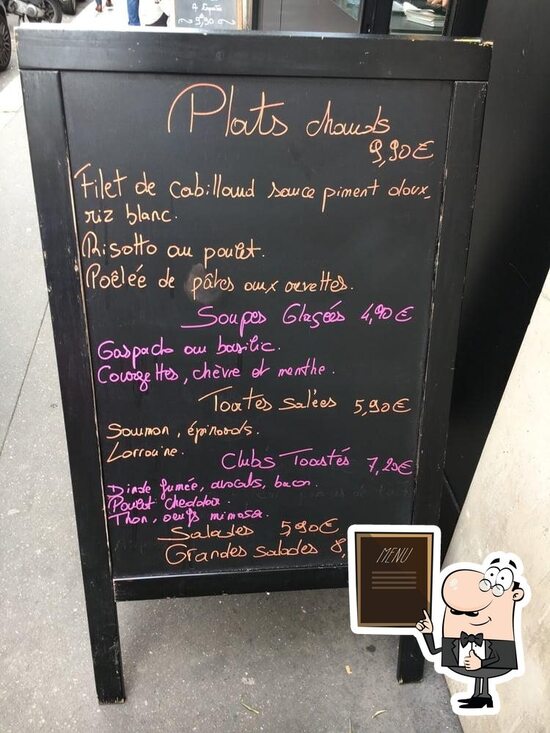 5,90€
Plats chauds
9,90€
Filet de cabillaud sauce piment doux,
riz blanc.
Risotto au poulet.
Poêlée de pâtes aux crevettes.
Soupes Glaçées 4,90€
Gaspacho au basilic.
Courgettes, chèvre et menthe.
Tartes salées 5,90€
Saumon, épinards.
Lorraine.
Clubs Toastés 7,20€
Dinde fumée, avocats, bacon.
Poulet Cheddar.
Thon, oeufs mimosa.
Salades 5,90€
Grandes salades 8,
MENU